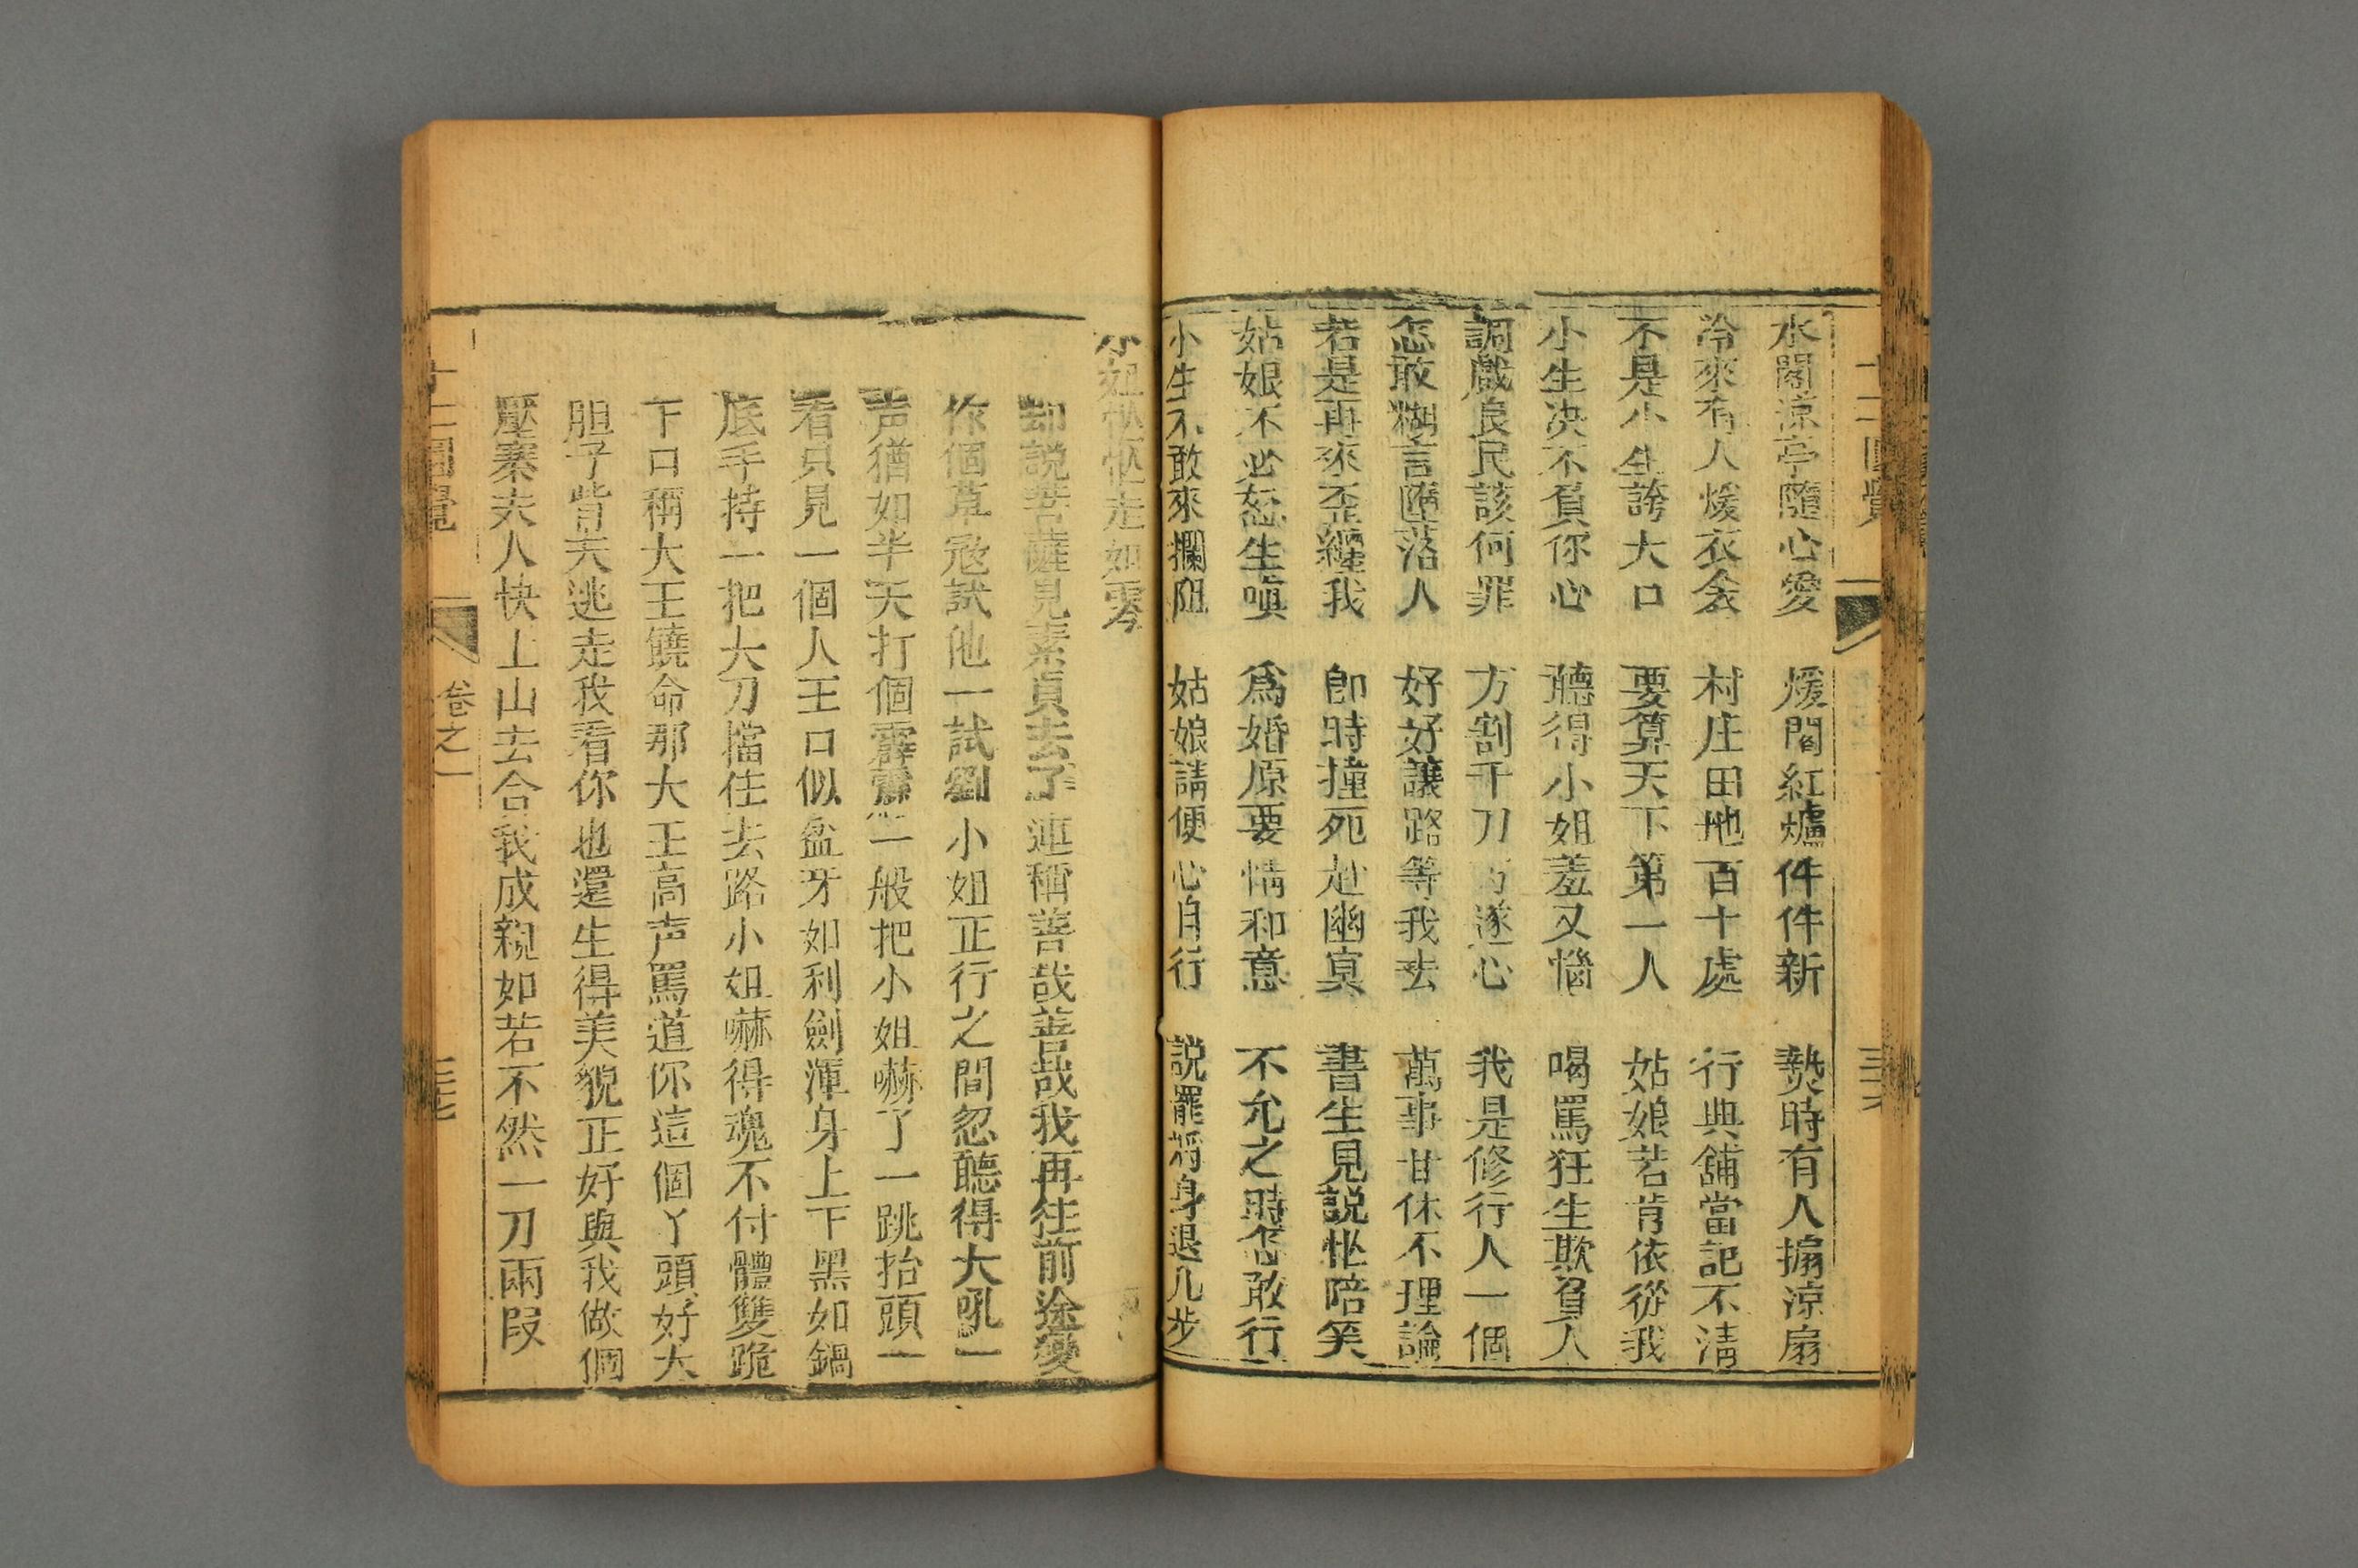 十二圓覺
三六
水閣涼亭隨心愛 煖閣紅爐件件新 𤍠時有人搧涼扇
冷來有人煖衣衾 村庄田地百十處 行典舖當記不清
不是小生誇大口 要算天下第一人 姑娘若肯依從我
小生决不負你心 聽得小姐羞又惱 喝罵狂生欺負人
調戲良民該何罪 方割千刀 遂心 我是修行人一個
怎敢糊言墮落人 好好讓路等我去 萬事甘休不理論
若是再來歪纏我 卽時撞死赴幽㝠 書生見説忙陪笑
姑娘不必怒生嗔 爲婚原要情和意 不允之時怎敢行
小生不敢來攔阻 姑娘請便心自行 説罷將身退几步
小姐忙走如雲
却説菩薩見素貞去了連稱善哉善哉我再往前途變
作個草寇試他一試劉小姐正行之間忽聽得大吼一
声猶如半天打個霹靂一般把小姐嚇了一跳抬頭一
看只見一個人王口似盆牙如利劍渾身上下黑如鍋
底手持一把大刀擋住去路小姐嚇得魂不付體雙跪
下口稱大王饒命那大王高声罵道你這個丫頭好大
胆子背夫逃走我看你也還生得美貌正好與我做個
壓寨夫人快上山去合我成親如若不然一刀兩叚
十二圓覺
卷之一
三七